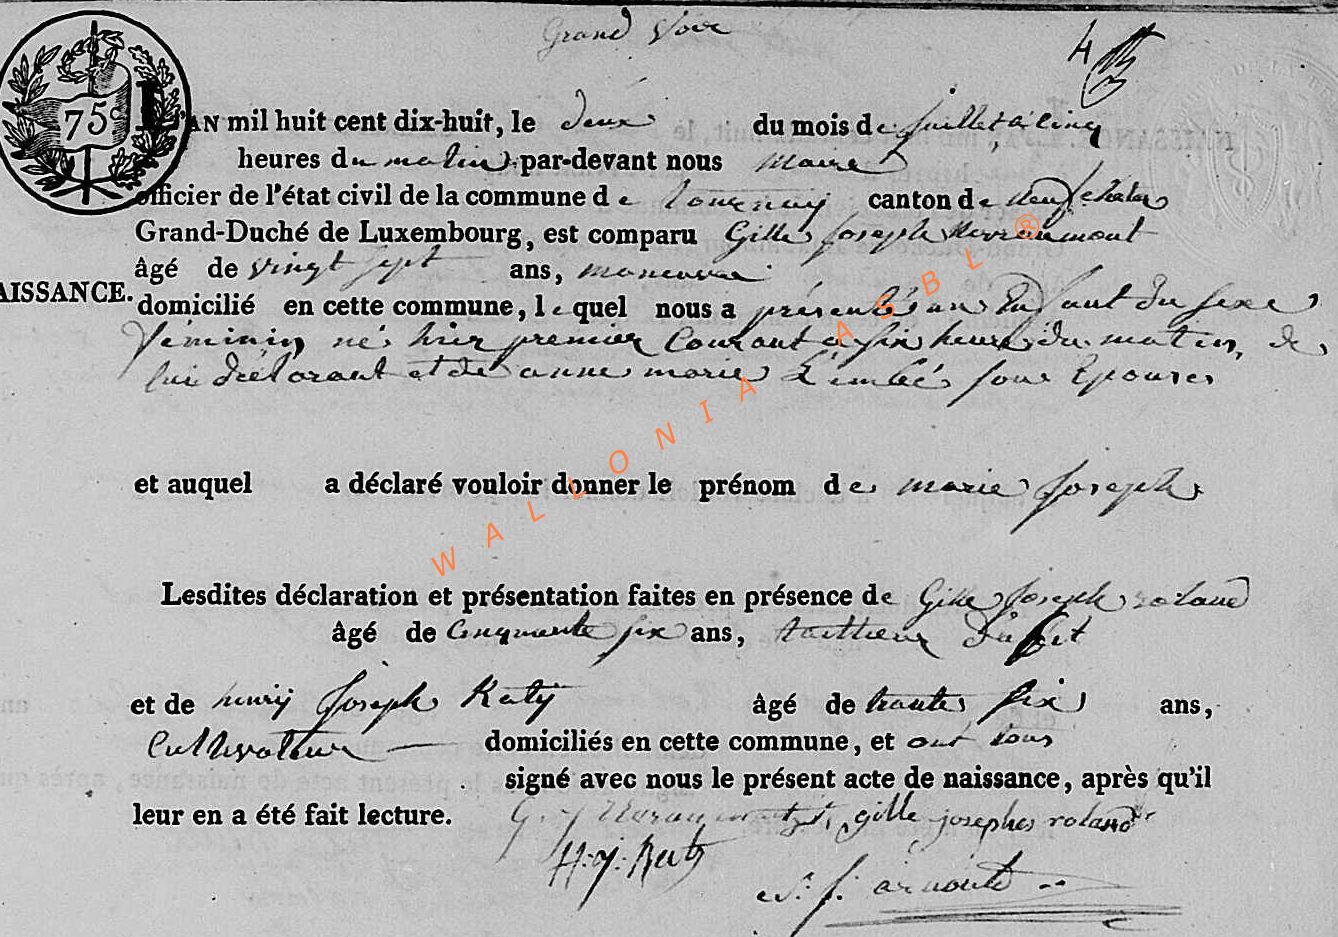 Grand Voir
4
75c
L'AN mil huit cent dix-huit, le deux du mois de juillet, à cinq
heures du matin par-devant nous maire
officier de l'état civil de la commune de tournay canton de neufchateau
Grand-Duché de Luxembourg, est comparu Gille joseph
âgé de vingt sept ans, manoeuvre
AISSANCE.
domicilié en cette commune, lequel nous a présenté un Enfant du sexe
féminin né hier premier Courant a six heures du matin, de
lui déclarant et de anne marie son Epouse
et auquel a déclaré vouloir donner le prénom de marie joseph
Lesdites déclaration et présentation faites en présence de Gille joseph roland
âgé de Cinquante six ans,
et de henry joseph Raty âgé de trente six ans,
Cultivateur domiciliés en cette commune, et ont tous
signé avec nous le présent acte de naissance, après qu'il
leur en a été fait lecture.
gille josephe roland
H: j: Raty
arnould
WALLONIA ASBL ®